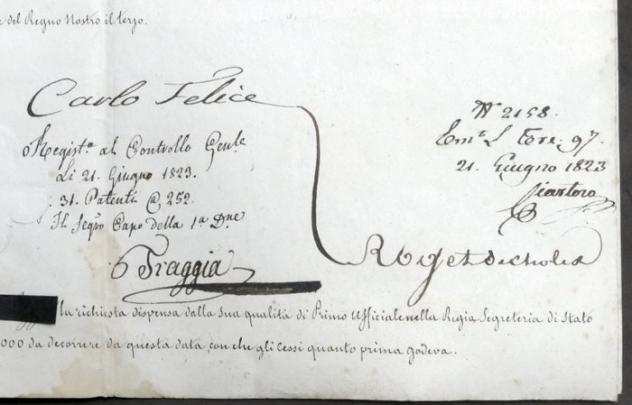 del Regno Nostro il terzo.
Carlo Felice
Regist.ta al Controllo Gen.le
Li 21. Giugno 1823.
31. Patenti @ 252.
Il Segro Capo della 1a D.ne
Traggia
N° 2158.
21. Giugno 1823
Roget de Cholex
la richiesta dispensa dalla sua qualità di Primo Ufficiale nella Regia Segreteria di Stato
000 da decorrere da questa data, con che gli cessi quanto prima godeva.